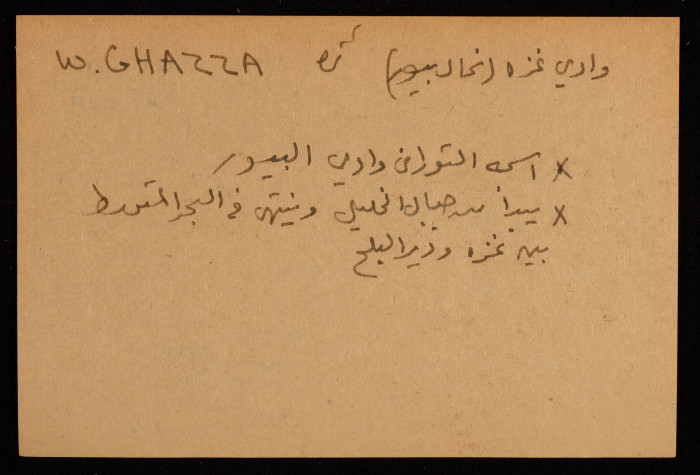 وادي غزه (نحال بسور) W. GHAZZA
x اسمه التوراتي وادي البسور
x يبدأ من جبال الخليل وينتهي في البحر المتوسط
بين غزه ودير البلح